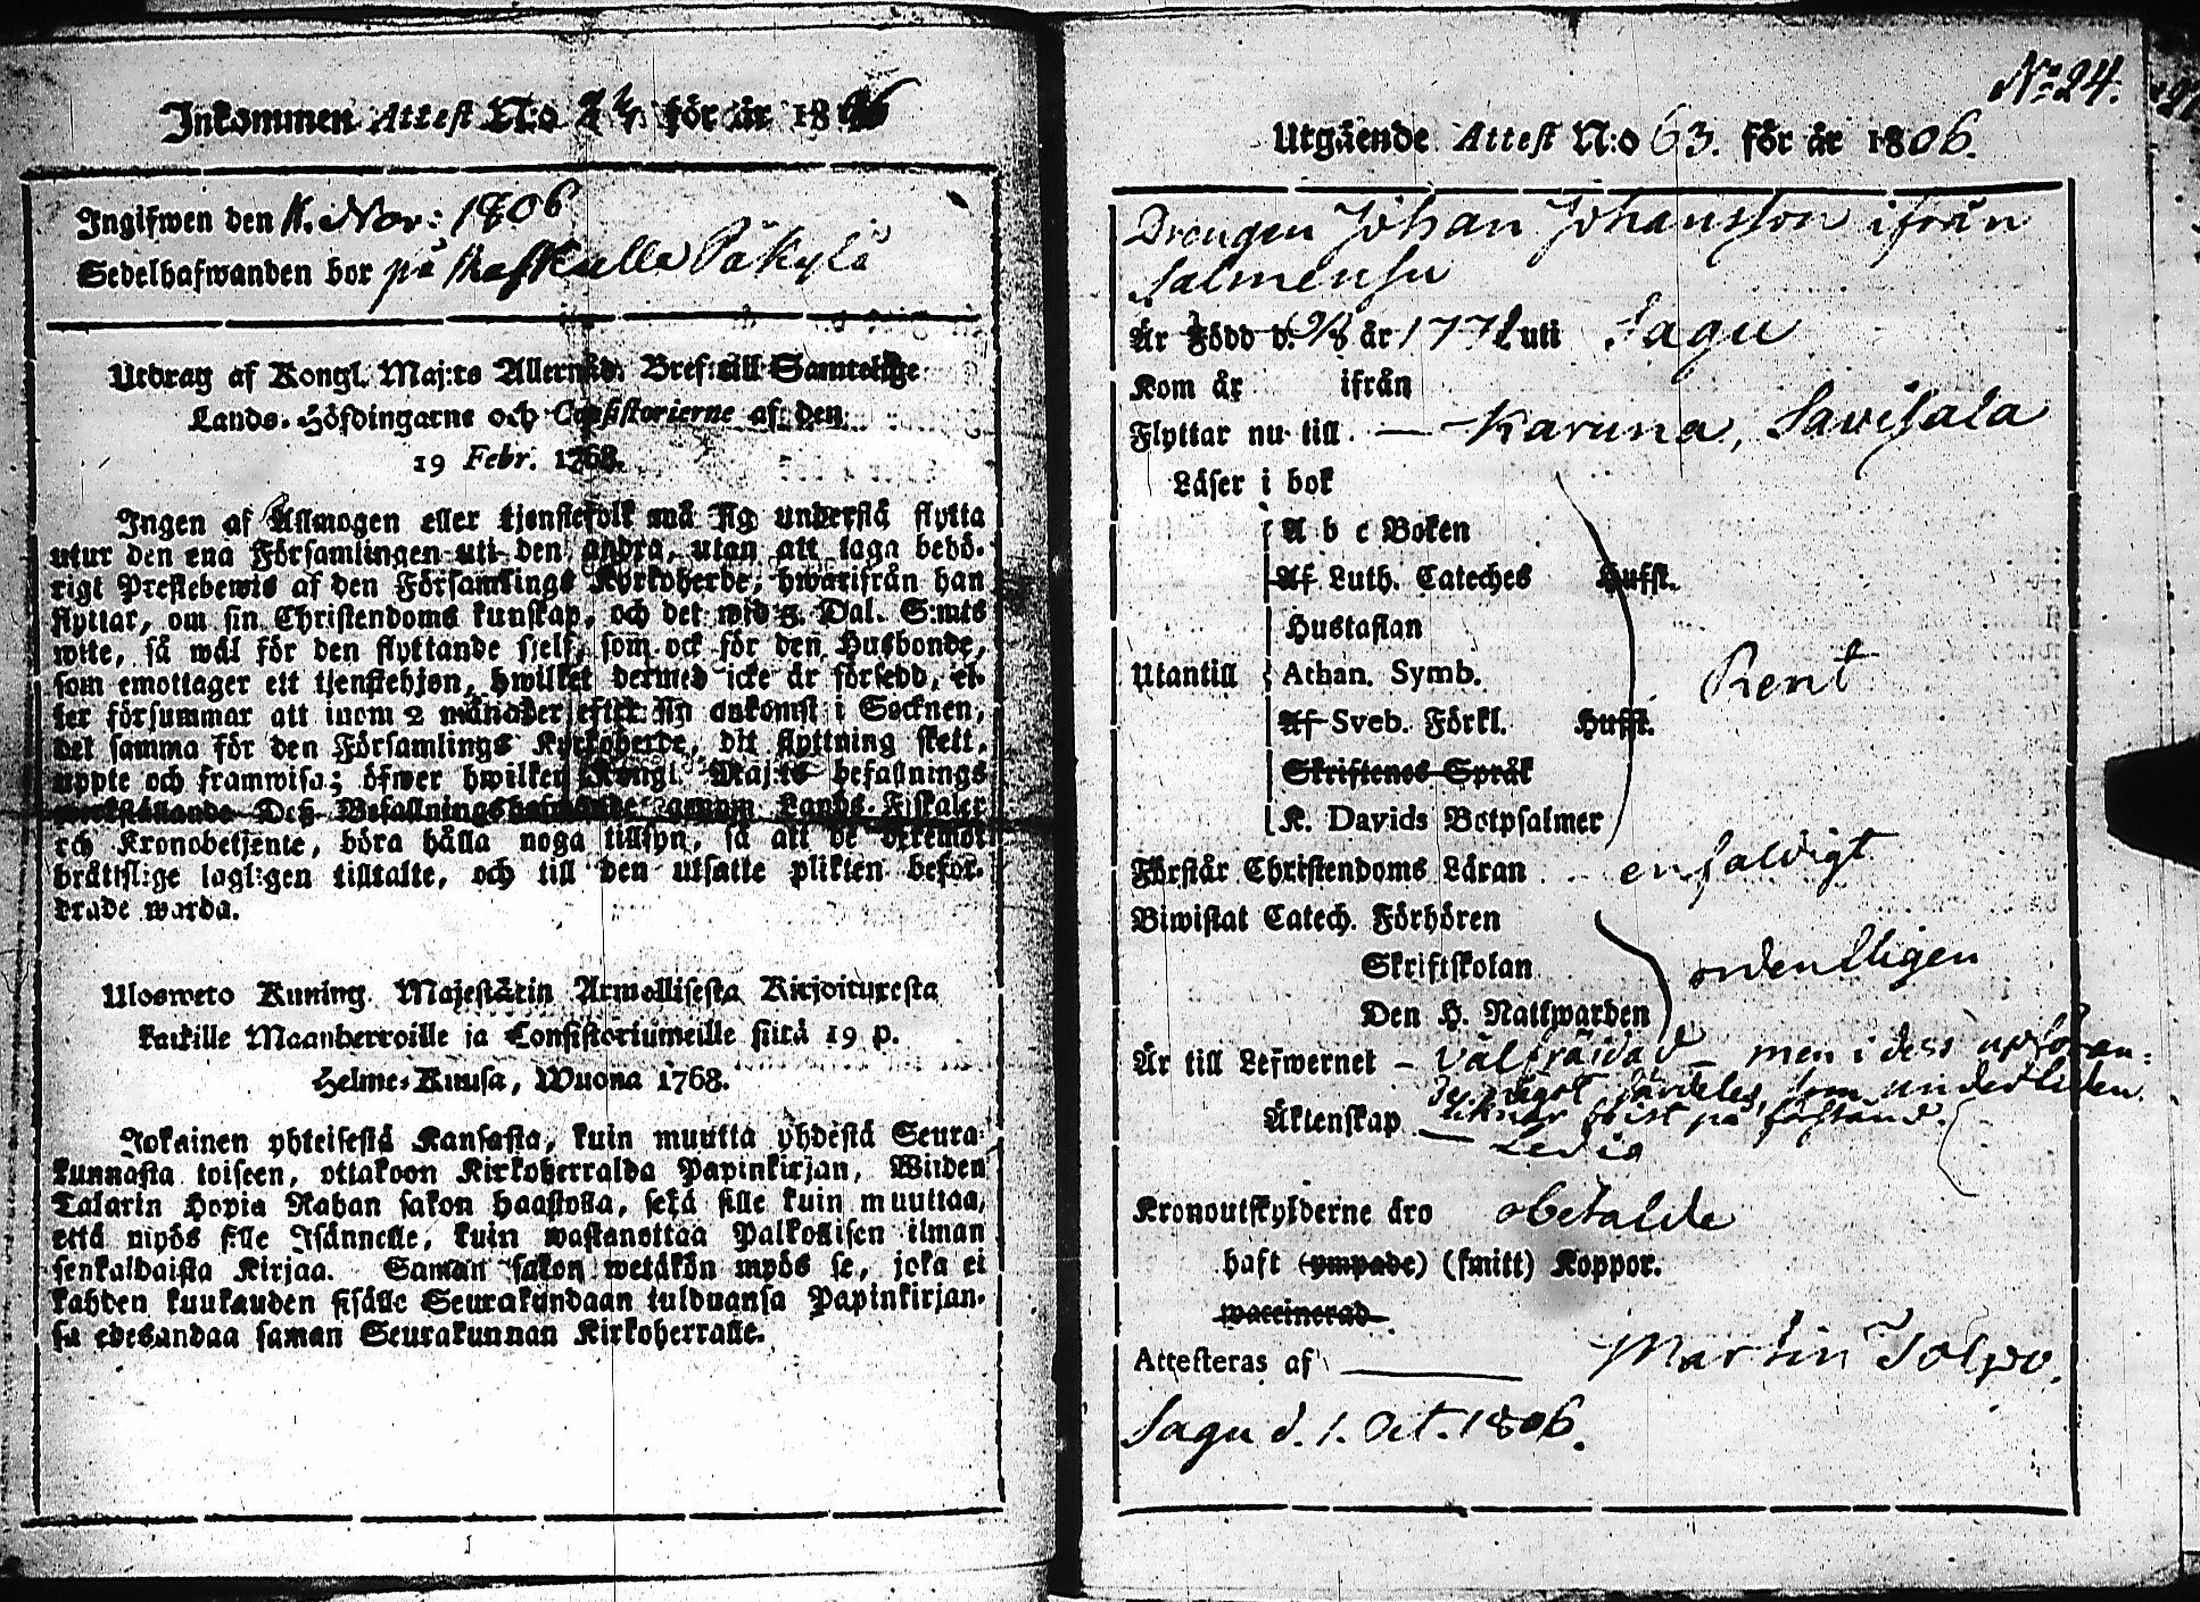 Inkommen Attest N:o 24 för år 1806
Ingifwen den 11. Nov: 1806
Sedelhafwanden bor på Påkylä
Utdrag af Kongl. Maj:ts Allernåd. Bref till Samtelige
Lands-Höfdingarne och Consistorierne af den
19 Febr. 1768.
Ingen af Allmogen eller tjenstefolk må sig understå flytta
utur den ena Församlingen uti den andra, utan att taga behö-
rigt Prestebewis af den Församlings Kyrkoherde, hwarifrån han
flyttar, om sin Christendoms kunskap, och det wid 8. Dal. S:mts
wite, så wäl för den flyttande sjelf, som ock för den Husbonde,
som emottager ett tjenstehjon, hwilket dermed icke är försedd, el-
ler försummar att inom 2 månader efter sin ankomst i Socknen,
det samma för den Församlings Kyrkoherde, dit flyttning skett,
uppte och framwisa; öfwer hwilken Kongl. Maj:ts befallnings
werkställande Deß Befallningshafwande genom Lands-Fiskaler
och Kronobetjente, böra hålla noga tillsyn, så att de deremot
bråttslige lagligen tilltalte, och till den utsatte plikten befor-
drade warda.
Ulosweto Kuning. Majestätin Armollisesta Kirjoituxesta
kaikille Maanherroille ja Consistoriumeille siitä 19 p.
Helme-Kuusa, Wuona 1768.
Jokainen yhteisestä Kansasta, kuin muutta yhdestä Seura-
kunnasta toiseen, ottakoon Kirkoherralda Papinkirjan, Wiiden
Talarin Hopia Rahan sakon haastolla, sekä sille kuin muuttaa,
että myös sille Isännelle, kuin wastanottaa Palkollisen ilman
senkaldaista Kirjaa. Saman sakon wetäkön myös se, joka ei
kahden kuukauden sisälle Seurakundaan tulduansa Papinkirjan-
sa edesandaa saman Seurakunnan Kirkoherralle.
No 24.
Utgående Attest N:o 63. för år 1806.
Drengen Johan Johansson ifrån
Salmensu
Är Född d. 9/8 år 1771 uti Sagu
Kom år ifrån
Flyttar nu till — Karuna, Savisala
Läser i bok
A b c Boken
Af Luth. Cateches Hufst.
Hustaflan
Utantill Athan. Symb. Rent
Af Sveb. Förkl. Hufst.
Skriftenes Språk
K. Davids Botpsalmer
Förstår Christendoms Läran enfaldigt
Biwistat Catech. Förhören
Skriftskolan ordentligen
Den H. Nattwarden
Är till Lefwernet — välfräjdad — men i dess upföran:
de något särdeles, som understunden
liknar brist på förstånd.
Äktenskap — Ledig
Kronoutskylderne äro obetalde
haft (ympade) (smitt) Koppor.
waccinerad
Attesteras af Martin Tolpo.
Sagu d. 1. Oct. 1806.